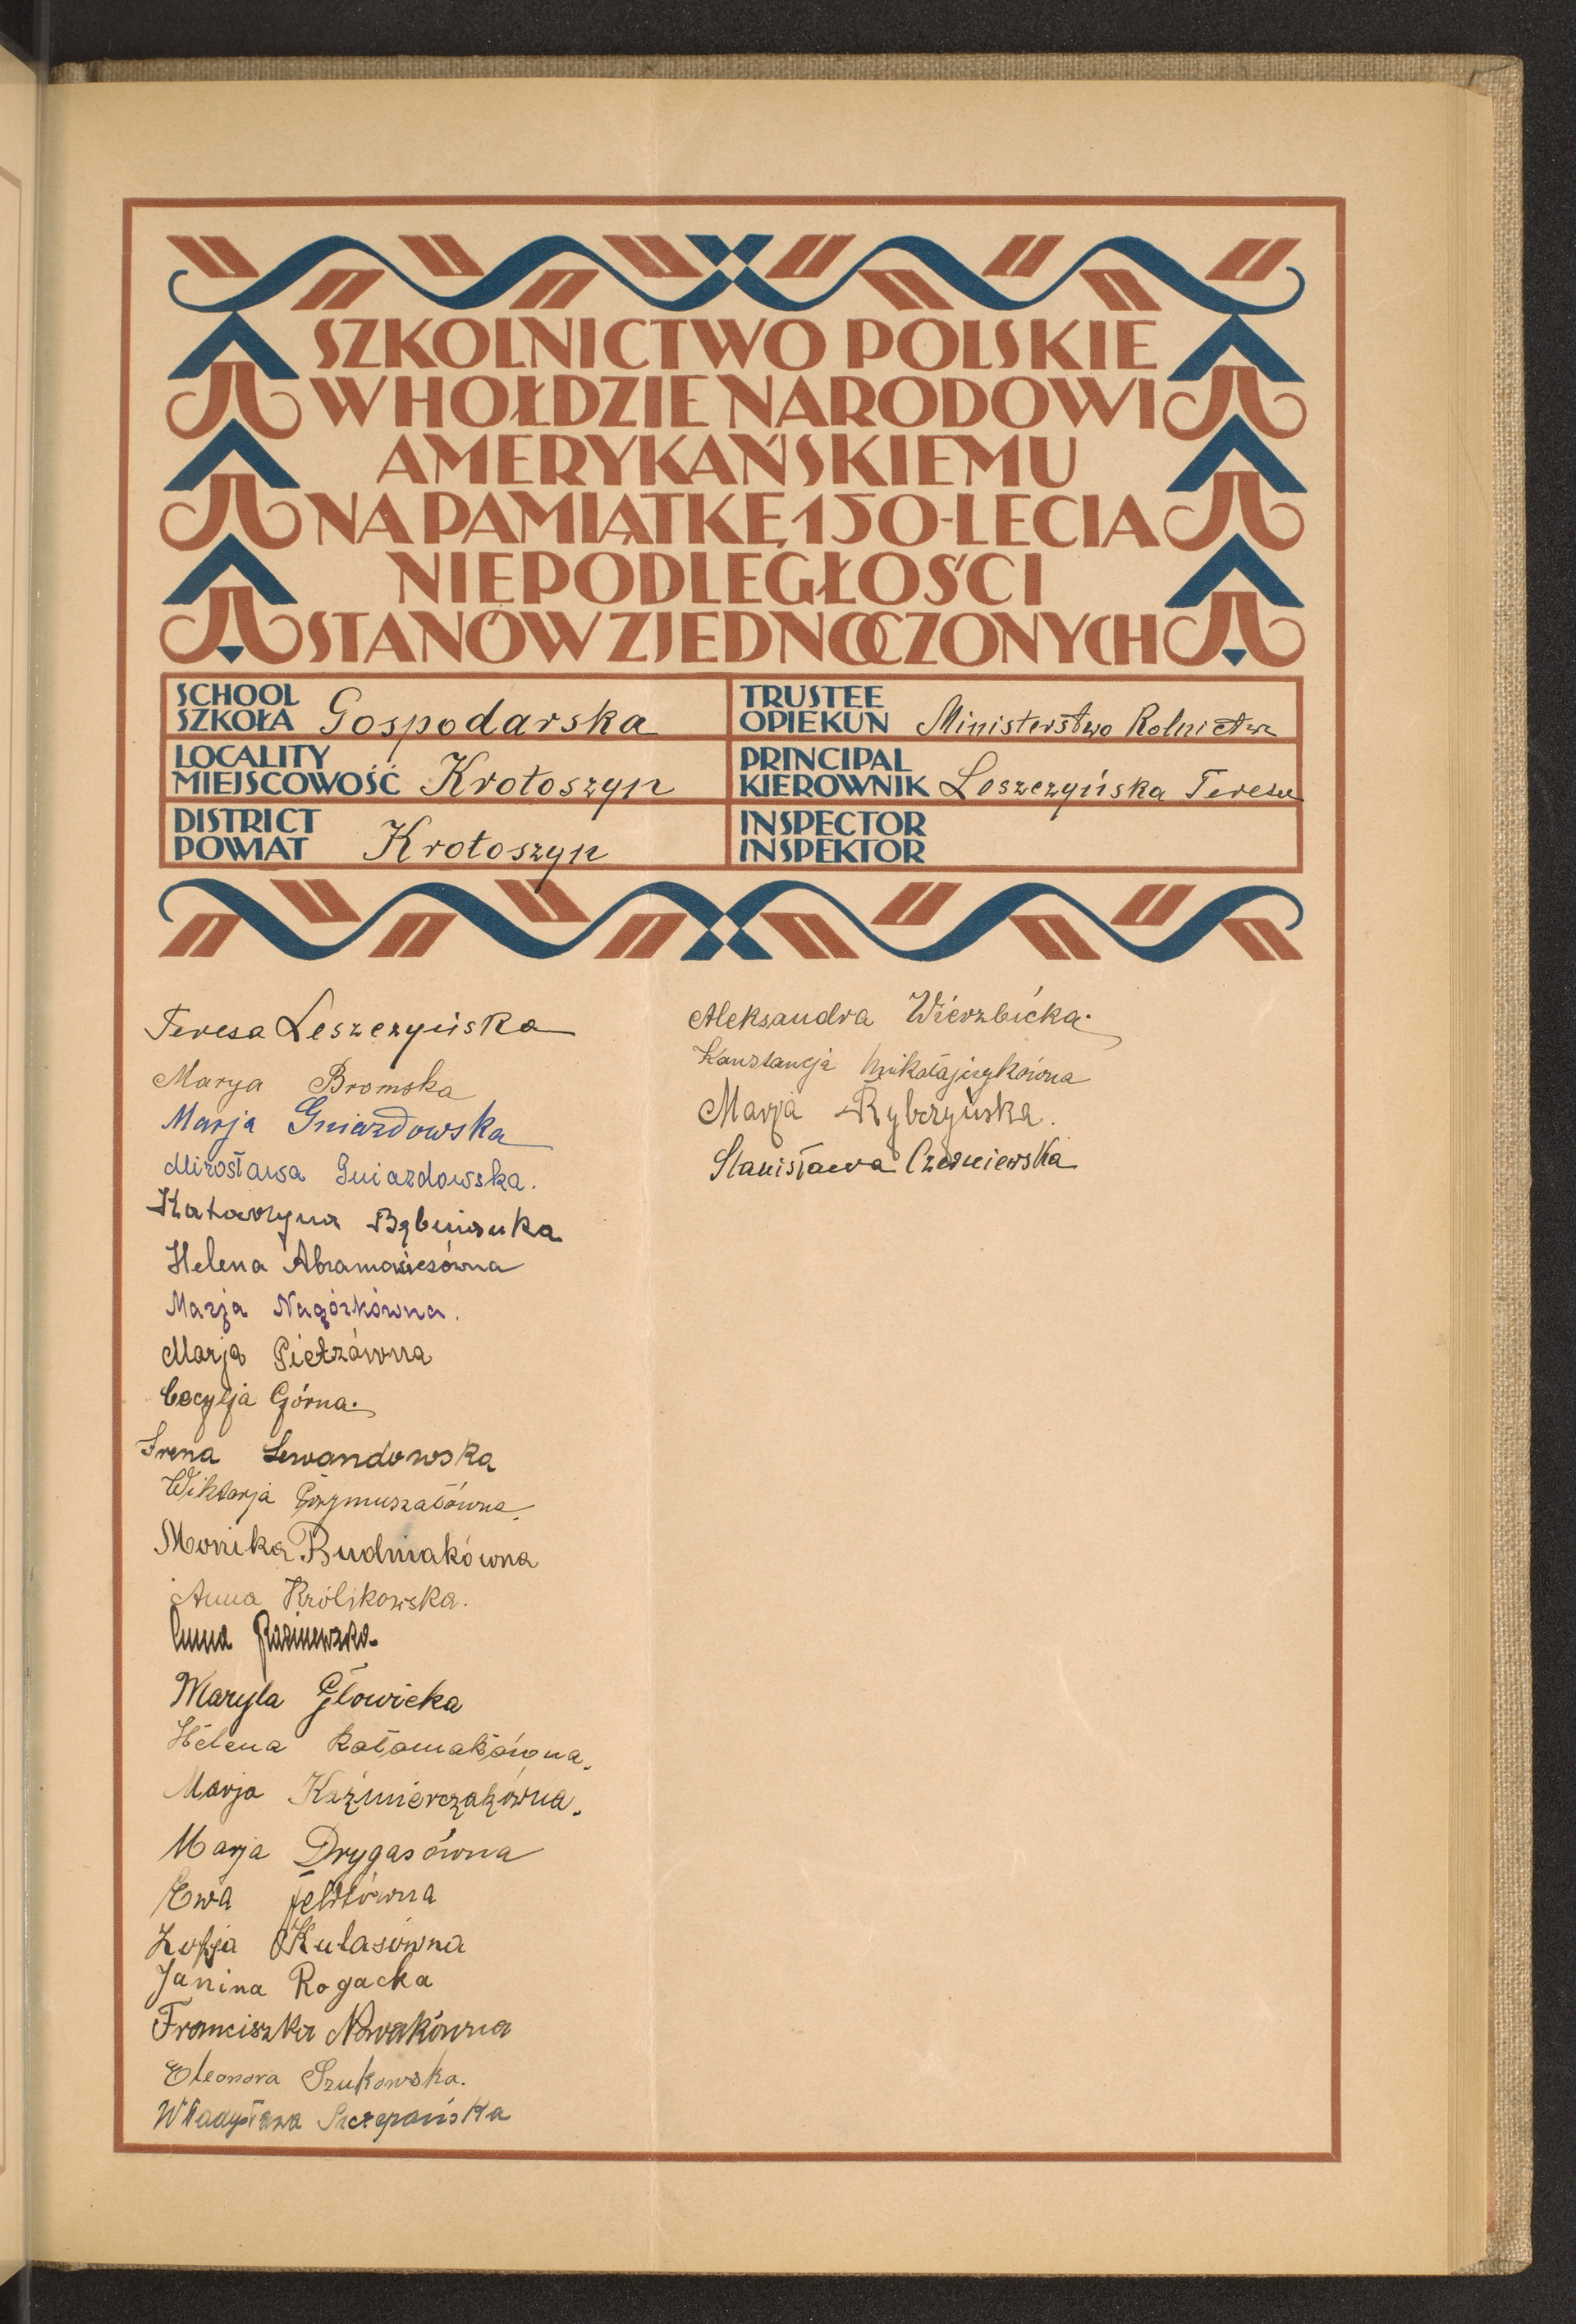 SZKOLNICTWO POLSKIE
W HOŁDZIE NARODOWI
AMERYKAŃSKIEMU
NA PAMIĄTKĘ 150-LECIA
NIEPODLEGŁOŚCI
STANÓW ZJEDNOCZONYCH
SCHOOL
SZKOŁA Gospodarska
TRUSTEE
OPIEKUN Ministerstwo Rolnictwa
LOCALITY
MIEJSCOWOŚĆ Krotoszyn
PRINCIPAL
KIEROWNIK Leszczyńska Teresa
DISTRICT
POWIAT Krotoszyn
INSPECTOR
INSPEKTOR
Teresa Leszczyńska
Marya Bromska
Marja Gniazdowska
Mirosława Gniazdowska.
Katarzyna
Helena Abramowiczówna
Marja Nagórkówna.
Marja Pietzówna
Cecylja Górna.
Irena Lewandowska
Wiktorja Przymuszałówna.
Monika Budniakówna
Anna Królikowska.
Anna
Maryla Głowicka
Helena Ratamakówna.
Marja Kaźmierczakówna.
Marja Drygasówna
Ewa
Zofja Kulasówna
Janina Rogacka
Franciszka Nowakówna
Eleonora Szukowska.
Władysława Szczepańska
Aleksandra Wierzbicka.
Konstancja Mikołajczykówna
Marja Rybczyńska.
Stanisława Cześniewska